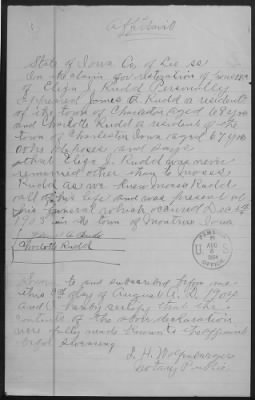 Affidavit
State of Iowa Co of Lee ss
In the claim for restoration of pension
of Eliza J. Rudd Personally
appeared James A Rudd a resident
of the town of Charleston aged 68 years
and Charlotte Rudd a resident of the
town of Charleston Iowa aged 67 years
who deposes and says
that Eliza J. Rudd was never
remarried other than to Moses
Rudd as we knew Moses Rudd
all of his life and was present at
his funeral which occured Dec
1903 in the town of Montrose Iowa
James A Rudd
Charlotte Rudd
PENSION
AUG
1904
U S
OFFICE
Sworn to and subscribed before me
this day of August A. D. 1904
and I hereby certify that the
contents of the above declaration
were fully made known to affiant
before swearing
Notary Public